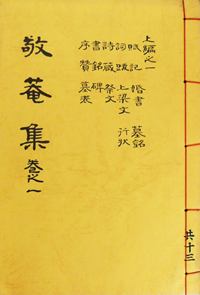 上編之一
賦 記 婚書 墓銘
詞 跋 上梁文 行狀
詩 箴 祭文
書 銘 碑
序 贊 墓表
敬菴集 卷之一
共十三